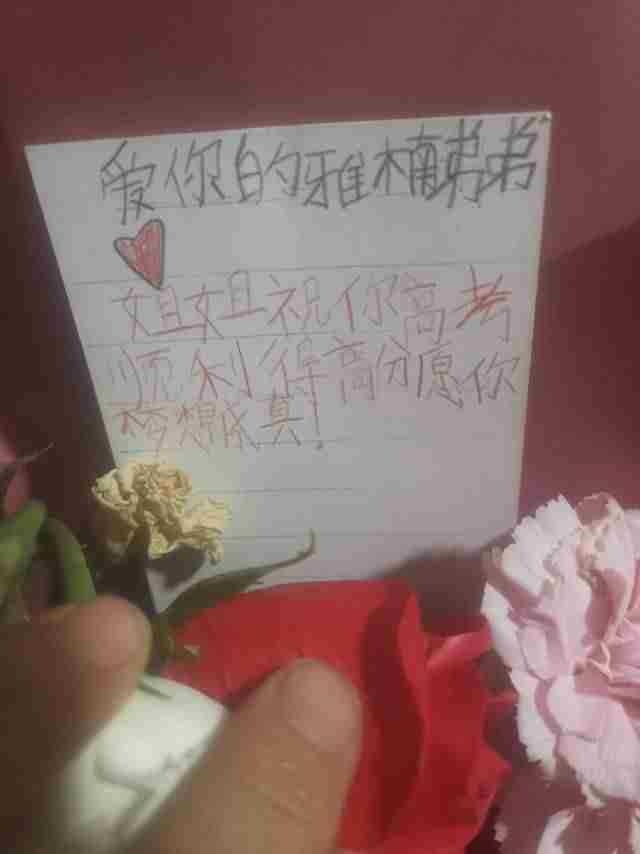 爱你的雅楠弟弟
姐姐祝你高考
顺利得高分愿你
梦想成真!